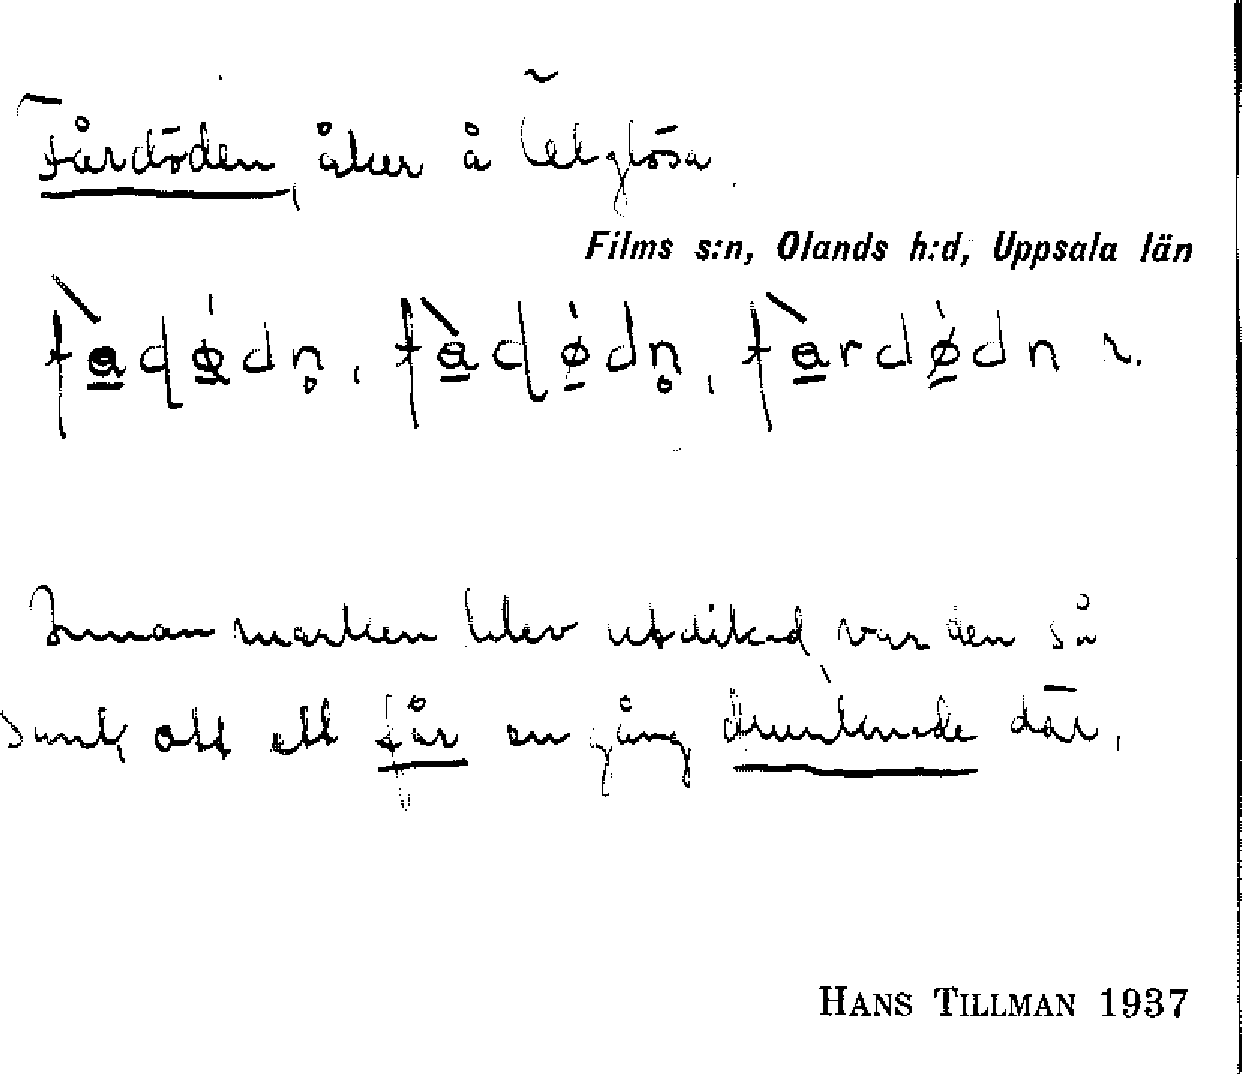 Fårdöden, åker å
Films s:n, Olands h:d, Uppsala län
Innan marken blev utdikad, var den så
sank, att ett får en gång drunknade där.
HANS TILLMAN 1937